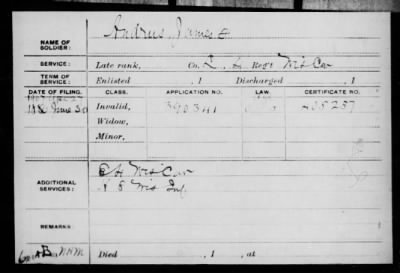 NAME OF SOLDIER: Andrus, James
SERVICE: Late rank, Co. L, 4 Reg't Wis Cav
TERM OF SERVICE: Enlisted , 1 Discharged , 1
DATE OF FILING. CLASS. APPLICATION NO. LAW. CERTIFICATE NO.
June 30 Invalid, 390341 405257
Widow,
Minor,
ADDITIONAL SERVICES: 4 Wis Cav
8 Wis Inf
REMARKS:
Died , 1 , at